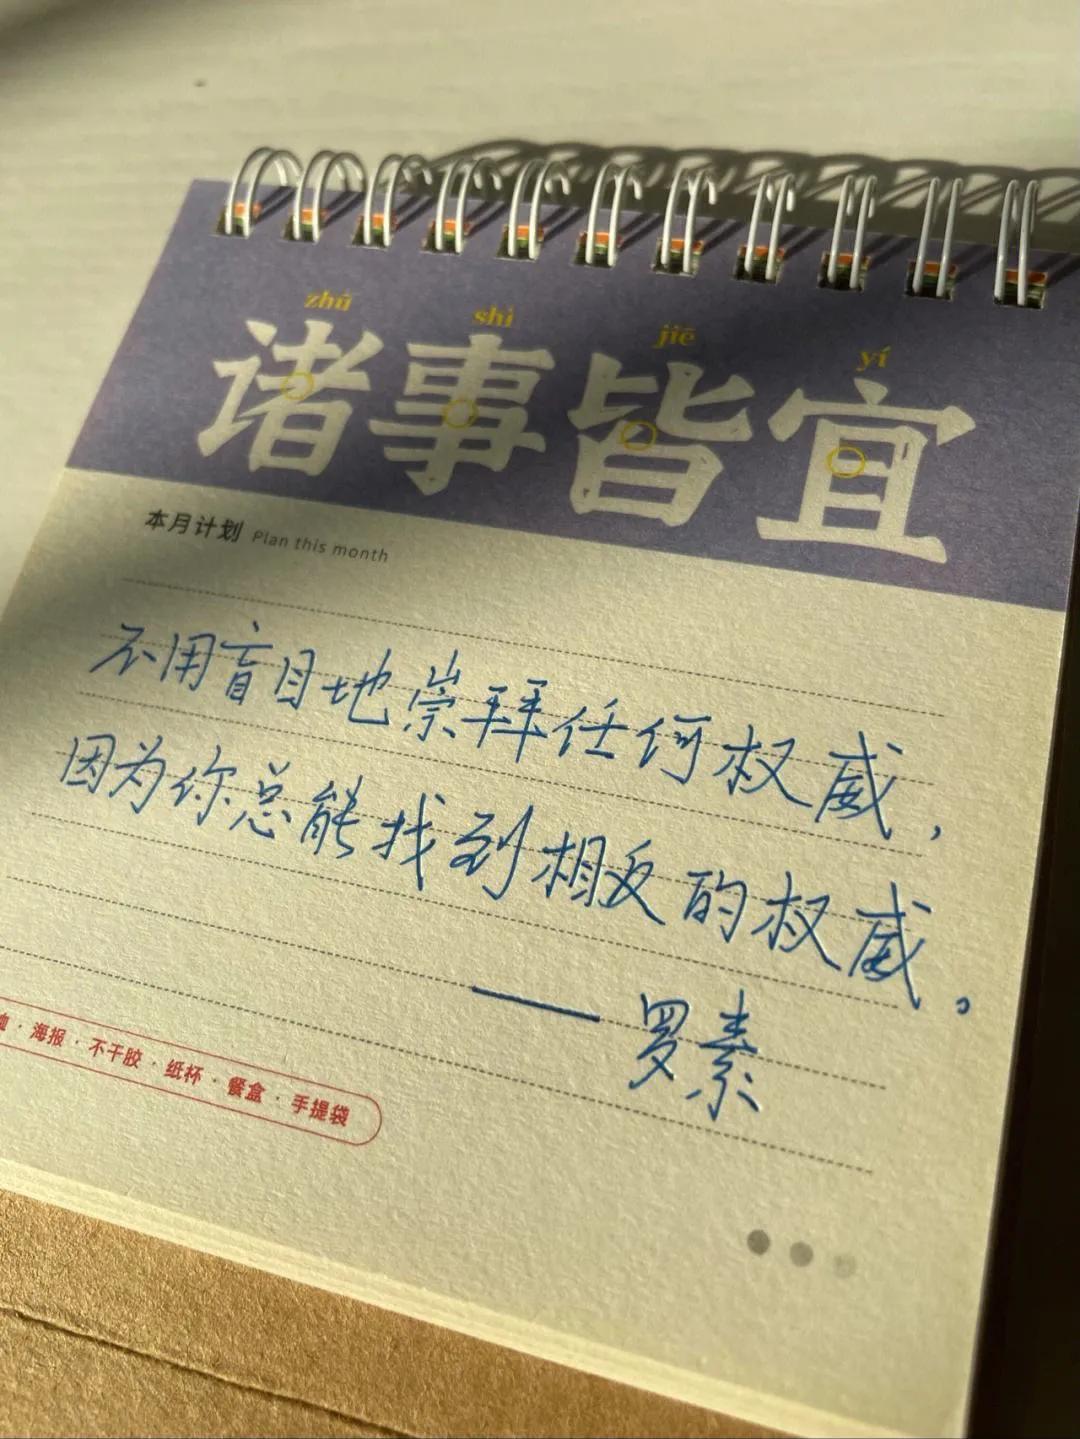 zhū shì jiē yí
诸事皆宜
本月计划 Plan this month
不用盲目地崇拜任何权威，
因为你总能找到相反的权威。
——罗素
· 海报 · 不干胶 · 纸杯 · 餐盒 · 手提袋